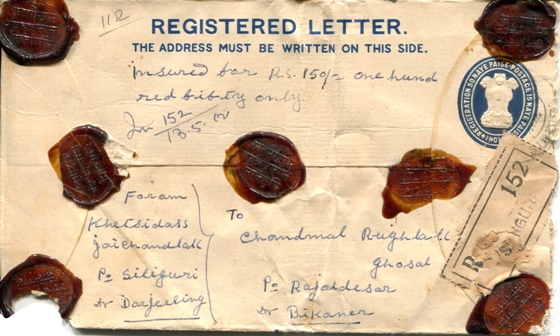 112
REGISTERED LETTER.
THE ADDRESS MUST BE WRITTEN ON THIS SIDE.
Insured for R.S. 150/= one hund
red bibty only
In 152
REGISTRATION 50 NAYE PAISE · POSTAGE 15 NAYE PAISE
R
152
Foram
Khetsidass
Jaichandlal
Po Siliguri
Dr Darjeeling
To
Chandmal Rughlall
Ghosal
Po Rajaldesar
Dr Bikaner